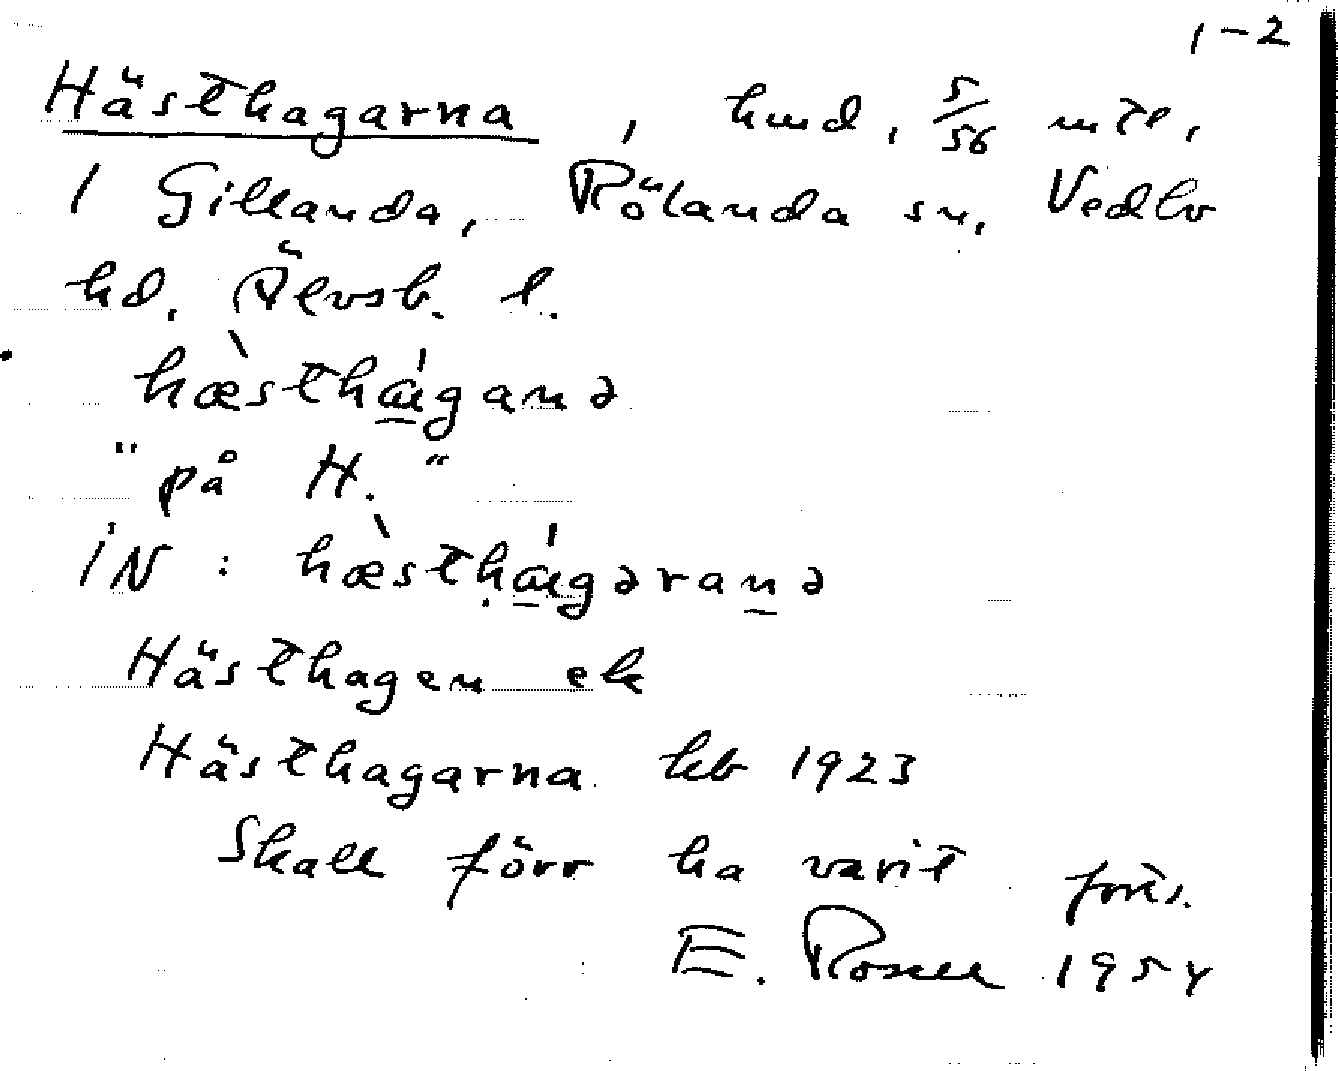 1-2
Hästhagarna, hmd, 5/56 mtl,
1 Gillanda, Rölanda sn, Vedbo
hd. Älvsb. l.
hæ̀stháganə
"på H."
iN: hæ̀stḥágəranə
Hästhagen ek
Hästhagarna hb 1923
Skall förr ha varit
E. Rosell 1954